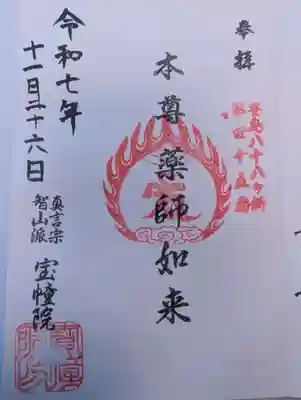 奉拝
豊島八十八ヶ所
第四十五番
本尊薬師如来
令和七年
十一月二十六日
真言宗
智山派
宝幢院